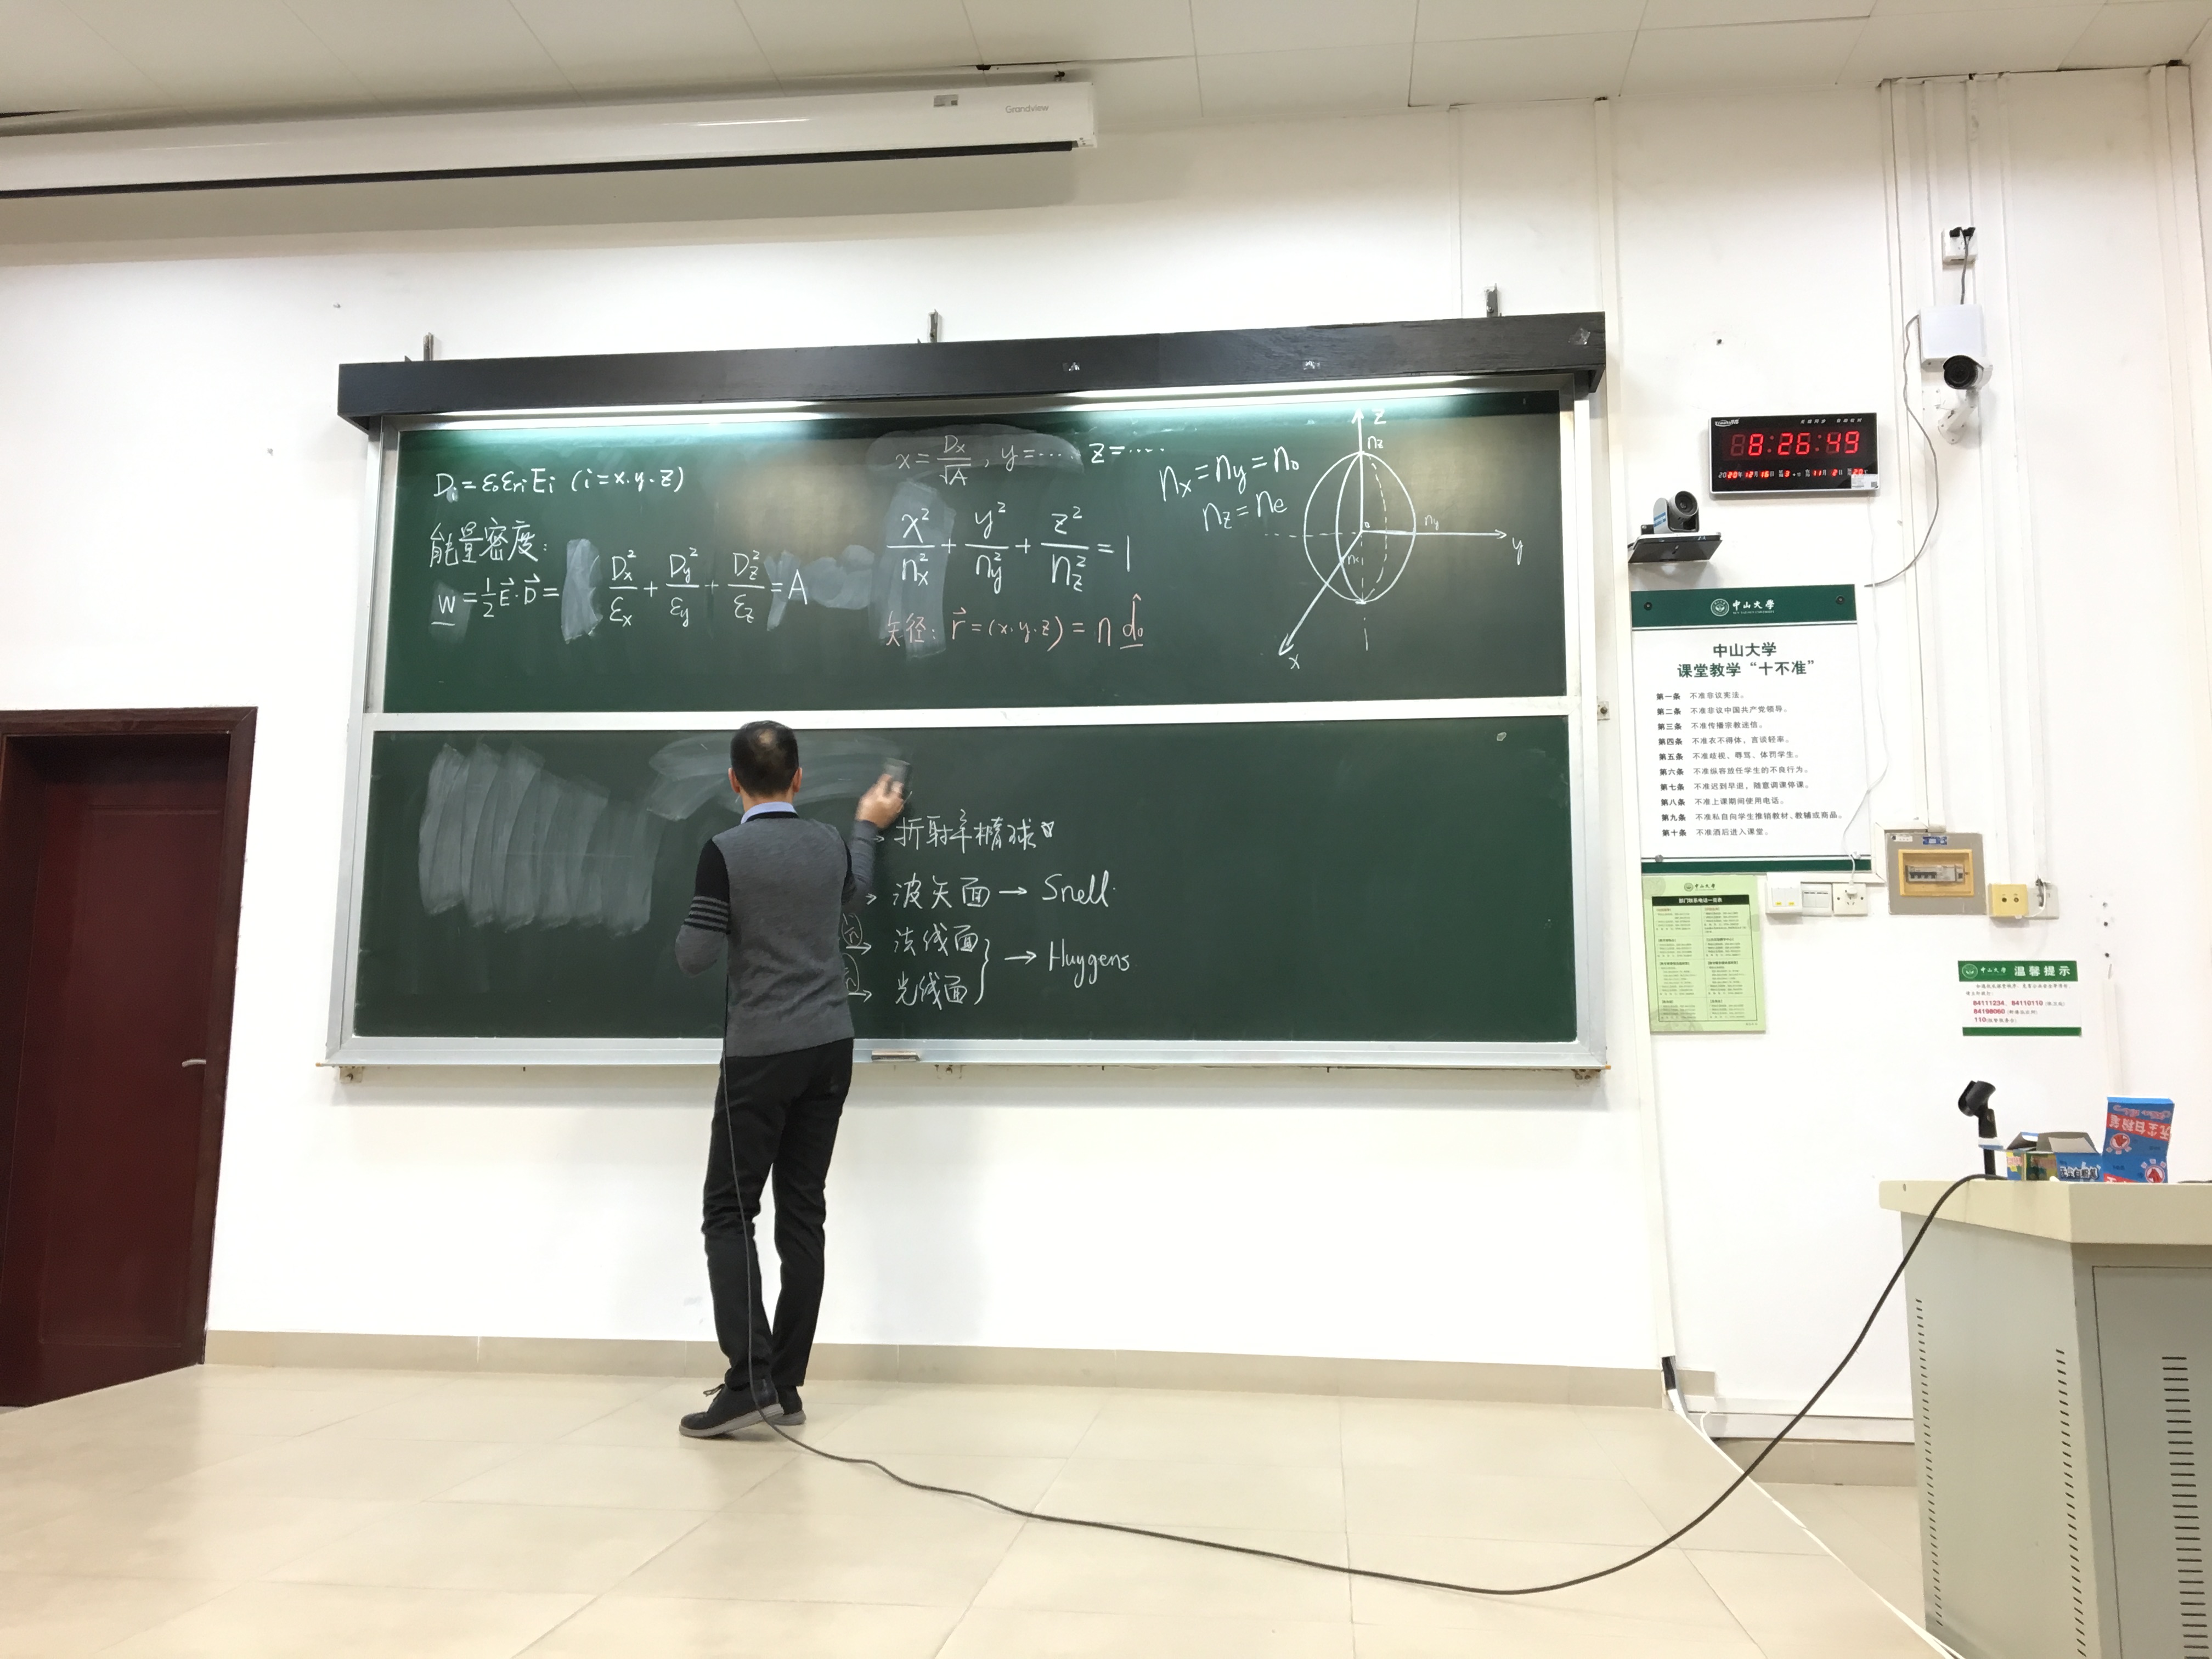 Grandview
Dᵢ = ε₀εᵣᵢEᵢ (i = x.y.z)
能量密度:
w = 1/2 E⃗·D⃗ = Dx²/εx + Dy²/εy + Dz²/εz = A
x = Dx/√A, y = ···· z = ····
x²/nx² + y²/ny² + z²/nz² = 1
矢径: r⃗ = (x.y.z) = n d̂₀
nx = ny = n₀
nz = ne
z
nz
ny
y
o
nx
x
折射率椭球
波矢面 → Snell.
法线面
光线面
} → Huygens
8:26:49
中山大学
中山大学
课堂教学“十不准”
第一条 不准非议宪法。
第二条 不准非议中国共产党领导。
第三条 不准传播宗教迷信。
第四条 不准衣不得体,言谈轻率。
第五条 不准歧视、辱骂、体罚学生。
第六条 不准纵容放任学生的不良行为。
第七条 不准迟到早退,随意调课停课。
第八条 不准上课期间使用电话。
第九条 不准私自向学生推销教材、教辅或商品。
第十条 不准酒后进入课堂。
中山大学
部门联系电话一览表
中山大学 温馨提示
84111234、84110110
84198060
110
无尘白粉笔